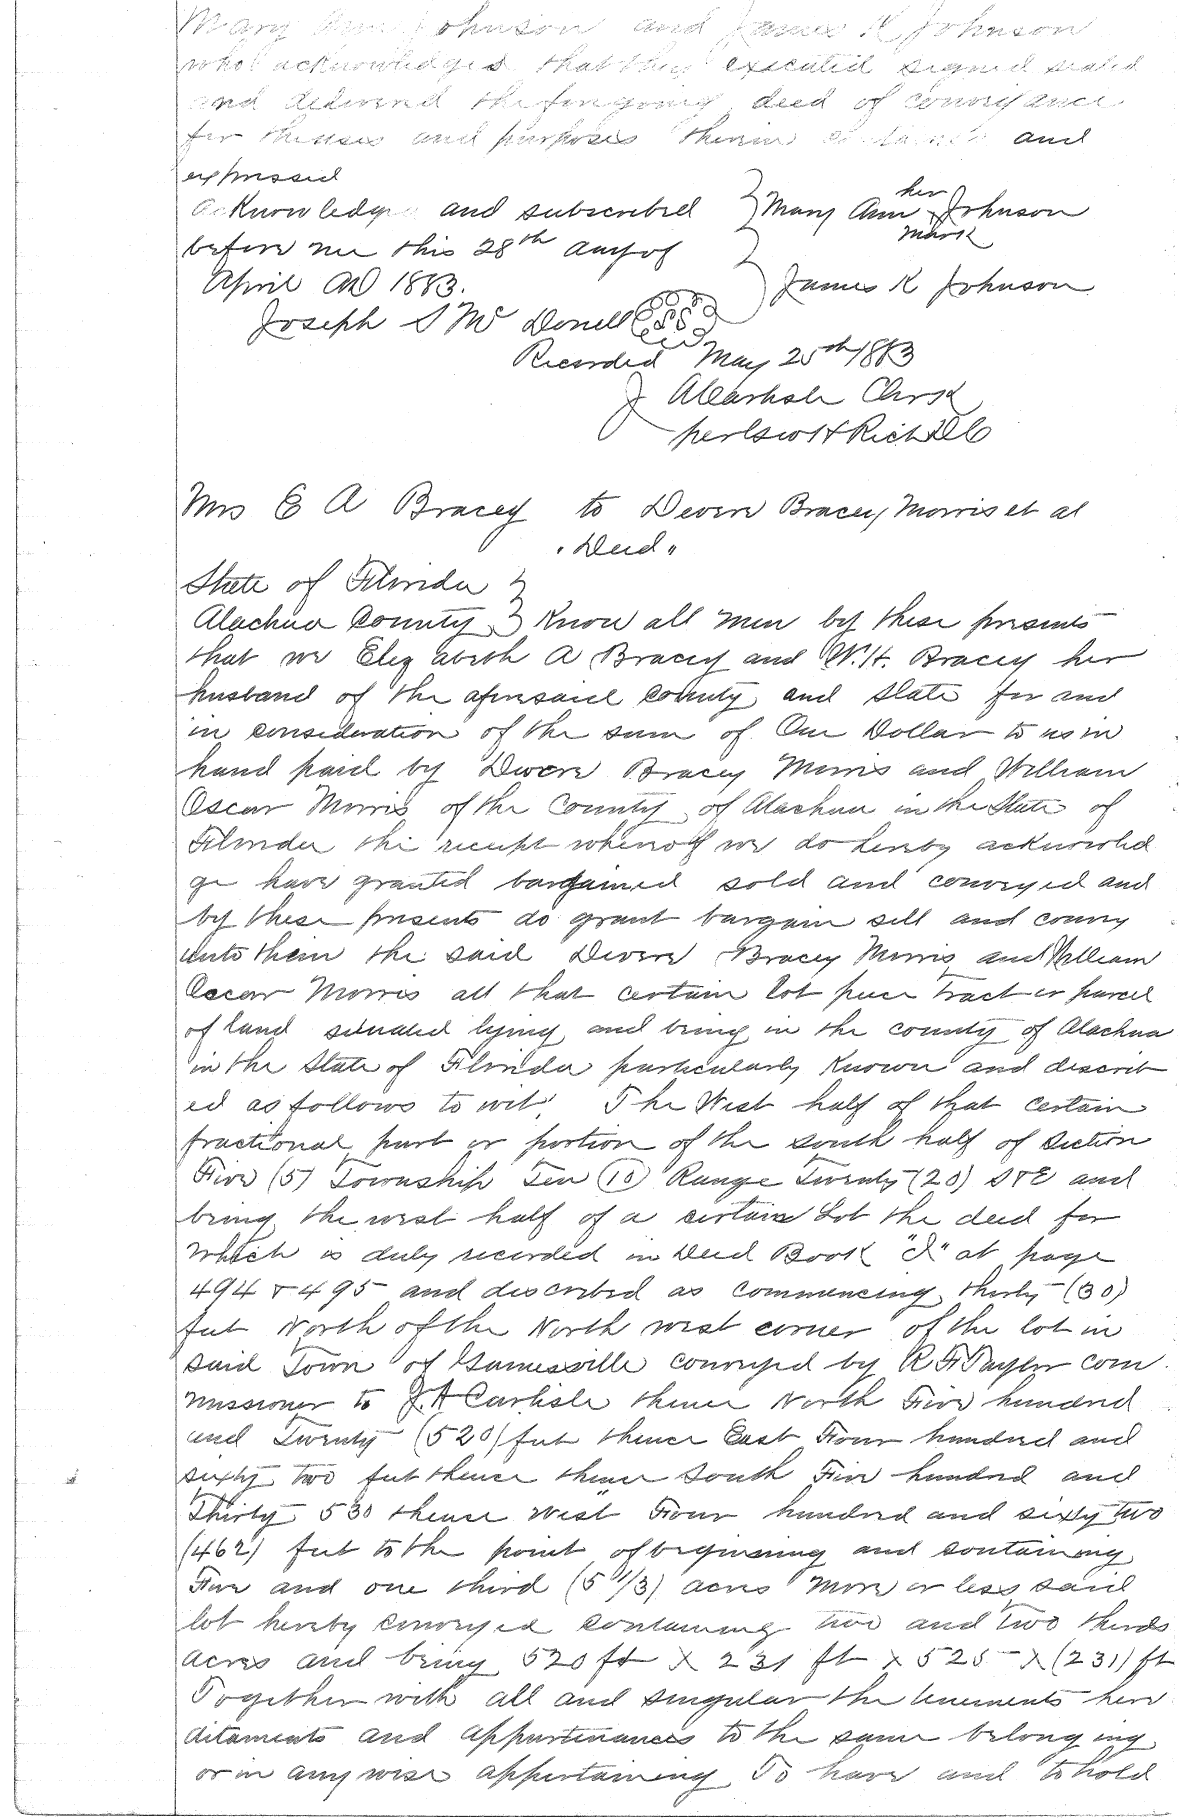 Mary Ann Johnson and James K Johnson
who acknowledged that they executed signed sealed
and delivered the foregoing deed of conveyance
for the uses and purposes therein contained and
expressed
Acknowledge and subscribed } Mary Ann her mark Johnson
before me this 28th day of
April AD 1883. } James K Johnson
Joseph S Mc Donell
Recorded May 25th 1883
J A Carlisle Clerk
per Geo H Rich DC
Mrs E A Bracey to Devere Bracey Morris et al
"Deed"
State of Florida }
Alachua County } Know all men by these presents
that we Elizabeth A Bracey and W. H. Bracey her
husband of the aforesaid county and State for and
in consideration of the sum of One Dollar to us in
hand paid by Devere Bracey Morris and William
Oscar Morris of the County of Alachua in the State of
Florida the receipt whereof we do hereby acknowled
ge have granted bargained sold and conveyed and
by these presents do grant bargain sell and convey
unto them the said Devere Bracey Morris and William
Oscar Morris all that certain lot piece Tract or parcel
of land situated lying and being in the county of Alachua
in the State of Florida particularly known and describ
ed as follows to wit. The West half of that certain
fractional part or portion of the south half of Section
Five (5) Township Ten (10) Range Twenty (20) S & E and
being the west half of a certain Lot the deed for
which is duly recorded in Deed Book "I" at page
494 & 495 and described as commencing thirty (30)
feet North of the North west corner of the lot in
said Town of Gainesville conveyed by R F Taylor com
missioner to J. A Carlisle thence North Five hundred
and Twenty (520) feet thence East Four hundred and
sixty two feet thence thence South Five hundred and
Thirty 530 thence West Four hundred and sixty two
(462) feet to the point of beginning and containing
Five and one third (5 1/3) acres more or less said
lot hereby conveyed containing two and two thirds
acres and being 520 ft X 231 ft X 525 X (231) ft
Together with all and singular the tenements here
ditaments and appurtenances to the same belonging
or in any wise appertaining To have and to hold